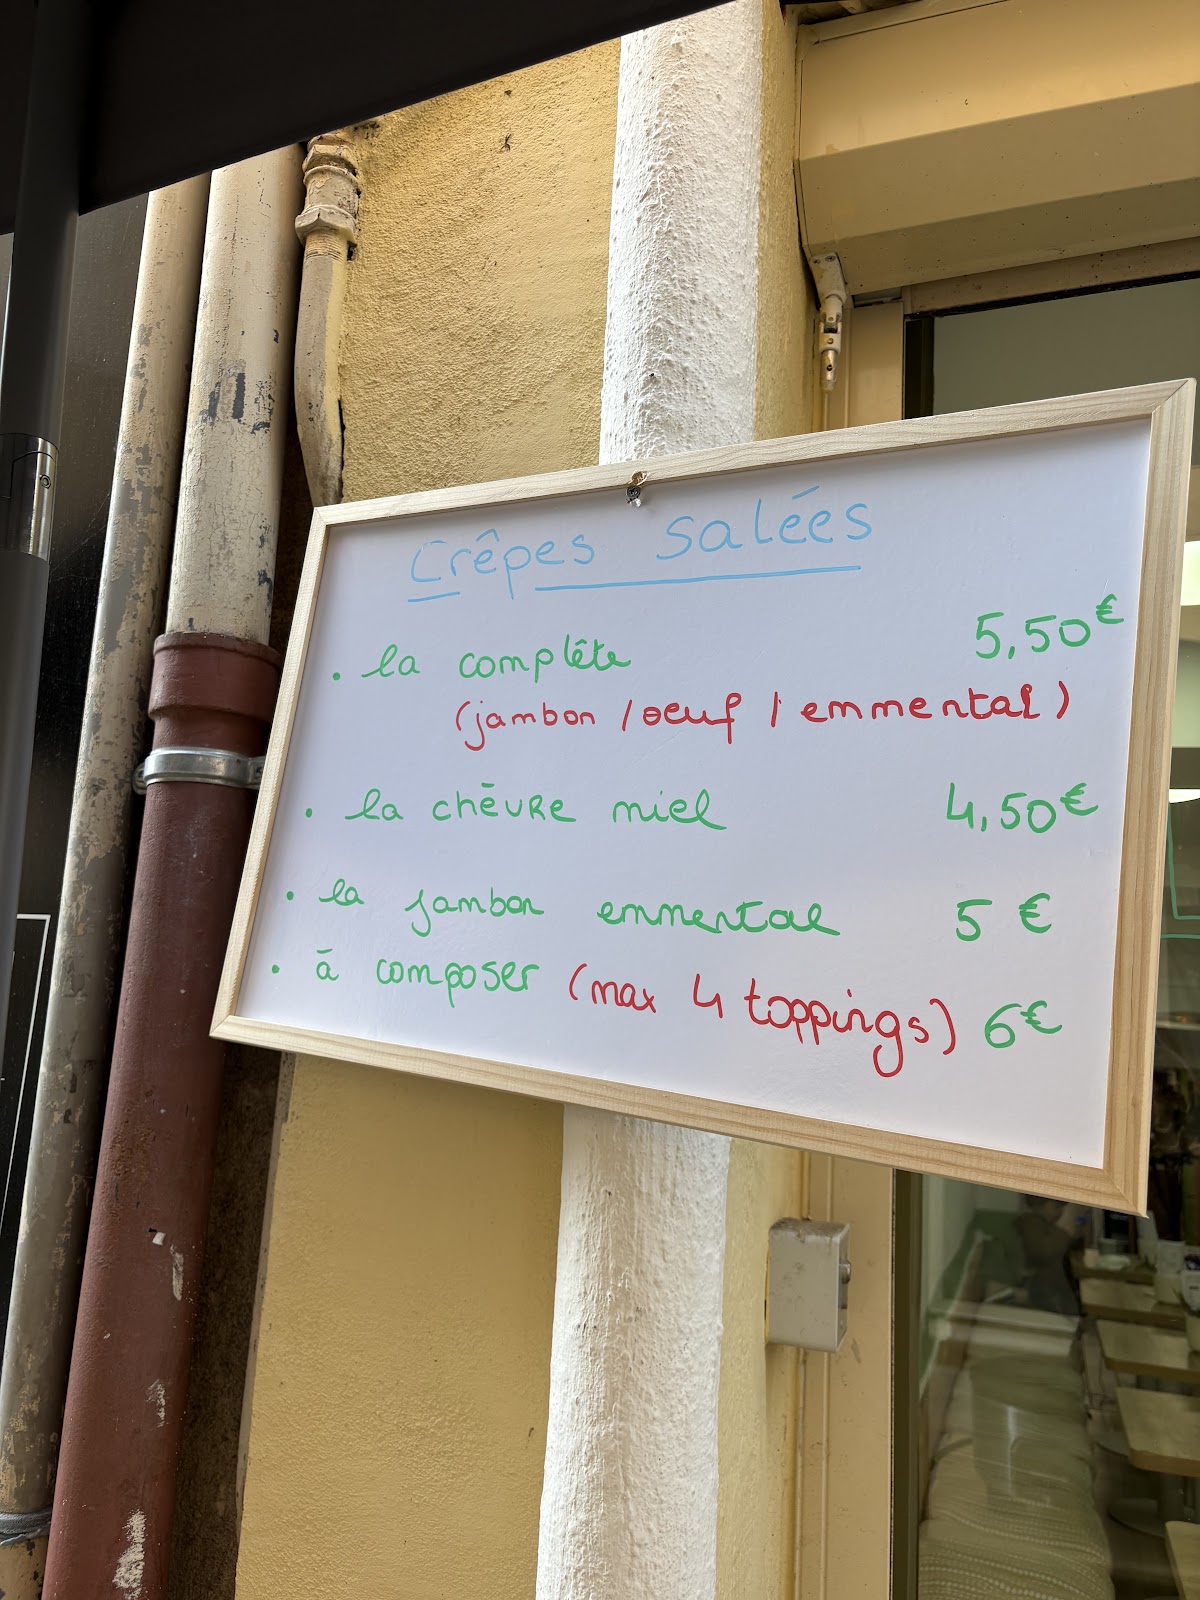 Crêpes Salées
• la complête 5,50€
(jambon / oeuf / emmental)
• la chèvre miel 4,50€
• la jambon emmental 5 €
• à composer (max 4 toppings) 6€